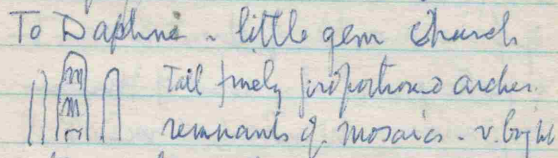 To Daphni - little gem church
Tall finely proportioned arches.
remnants of mosaics - v. bright